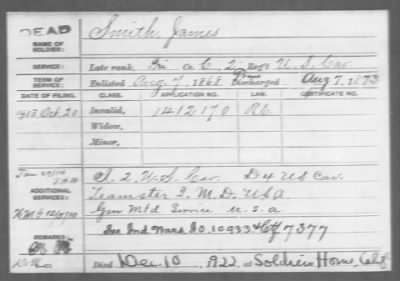 DEAD
NAME OF SOLDIER:
Smith, James
SERVICE:
Late rank, Pri Co. C, 2 Reg't U.S. Cav.
TERM OF SERVICE:
Enlisted Aug 7, 1868 Discharged Aug 7, 1873
DATE OF FILING.
CLASS.
APPLICATION NO.
LAW.
CERTIFICATE NO.
1913 Oct. 20
Invalid,
1412170
Widow,
Minor,
ADDITIONAL SERVICES:
2 U.S. Cav. D 4 US Cav.
Teamster Q.M.D. USA
Gen Mtd Service U.S.A
REMARKS:
See Ind Wars I.O. 10933 Ctf 7377
Died Dec. 10, 1922, at Soldiers Home, Calif